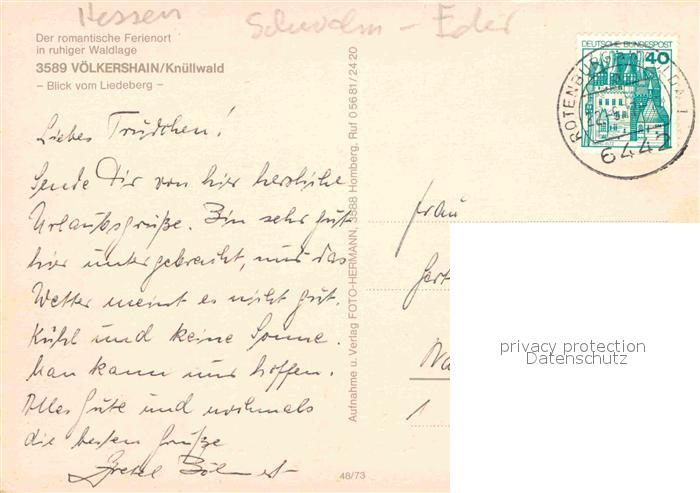 Hessen
Schwalm - Eder
Der romantische Ferienort
in ruhiger Waldlage
3589 VÖLKERSHAIN/Knüllwald
– Blick vom Liedeberg –
Liebes Trudchen!
Sende Dir von hier herzliche
Urlaubsgrüße. Bin sehr gut
hier untergebracht, nur das
Wetter meint es nicht gut.
Kühl und keine Sonne.
Man kann nur hoffen.
Alles Gute und nochmals
die besten Grüße
Gretel
48/73
Aufnahme u. Verlag FOTO-HERMANN, 3588 Homberg, Ruf 0 56 81 / 24 20
DEUTSCHE BUNDESPOST
40
ROTENBURG
6442
Frau
1
privacy protection
Datenschutz